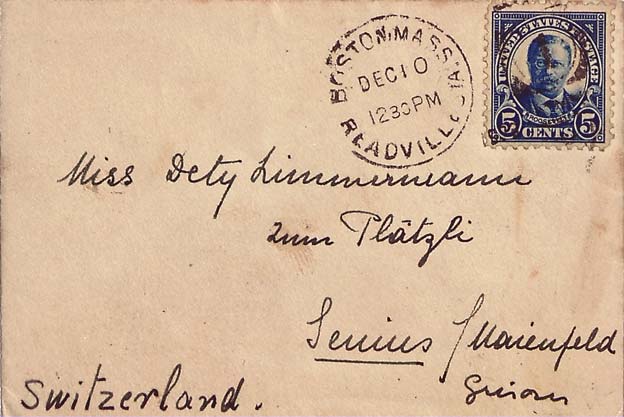 BOSTON, MASS.
DEC 10
1230 PM
READVILLE STA.
UNITED STATES POSTAGE
ROOSEVELT
5 CENTS 5
Miss Dety Zimmermann
zum Plätzli
Jenins / Maienfeld
Switzerland.